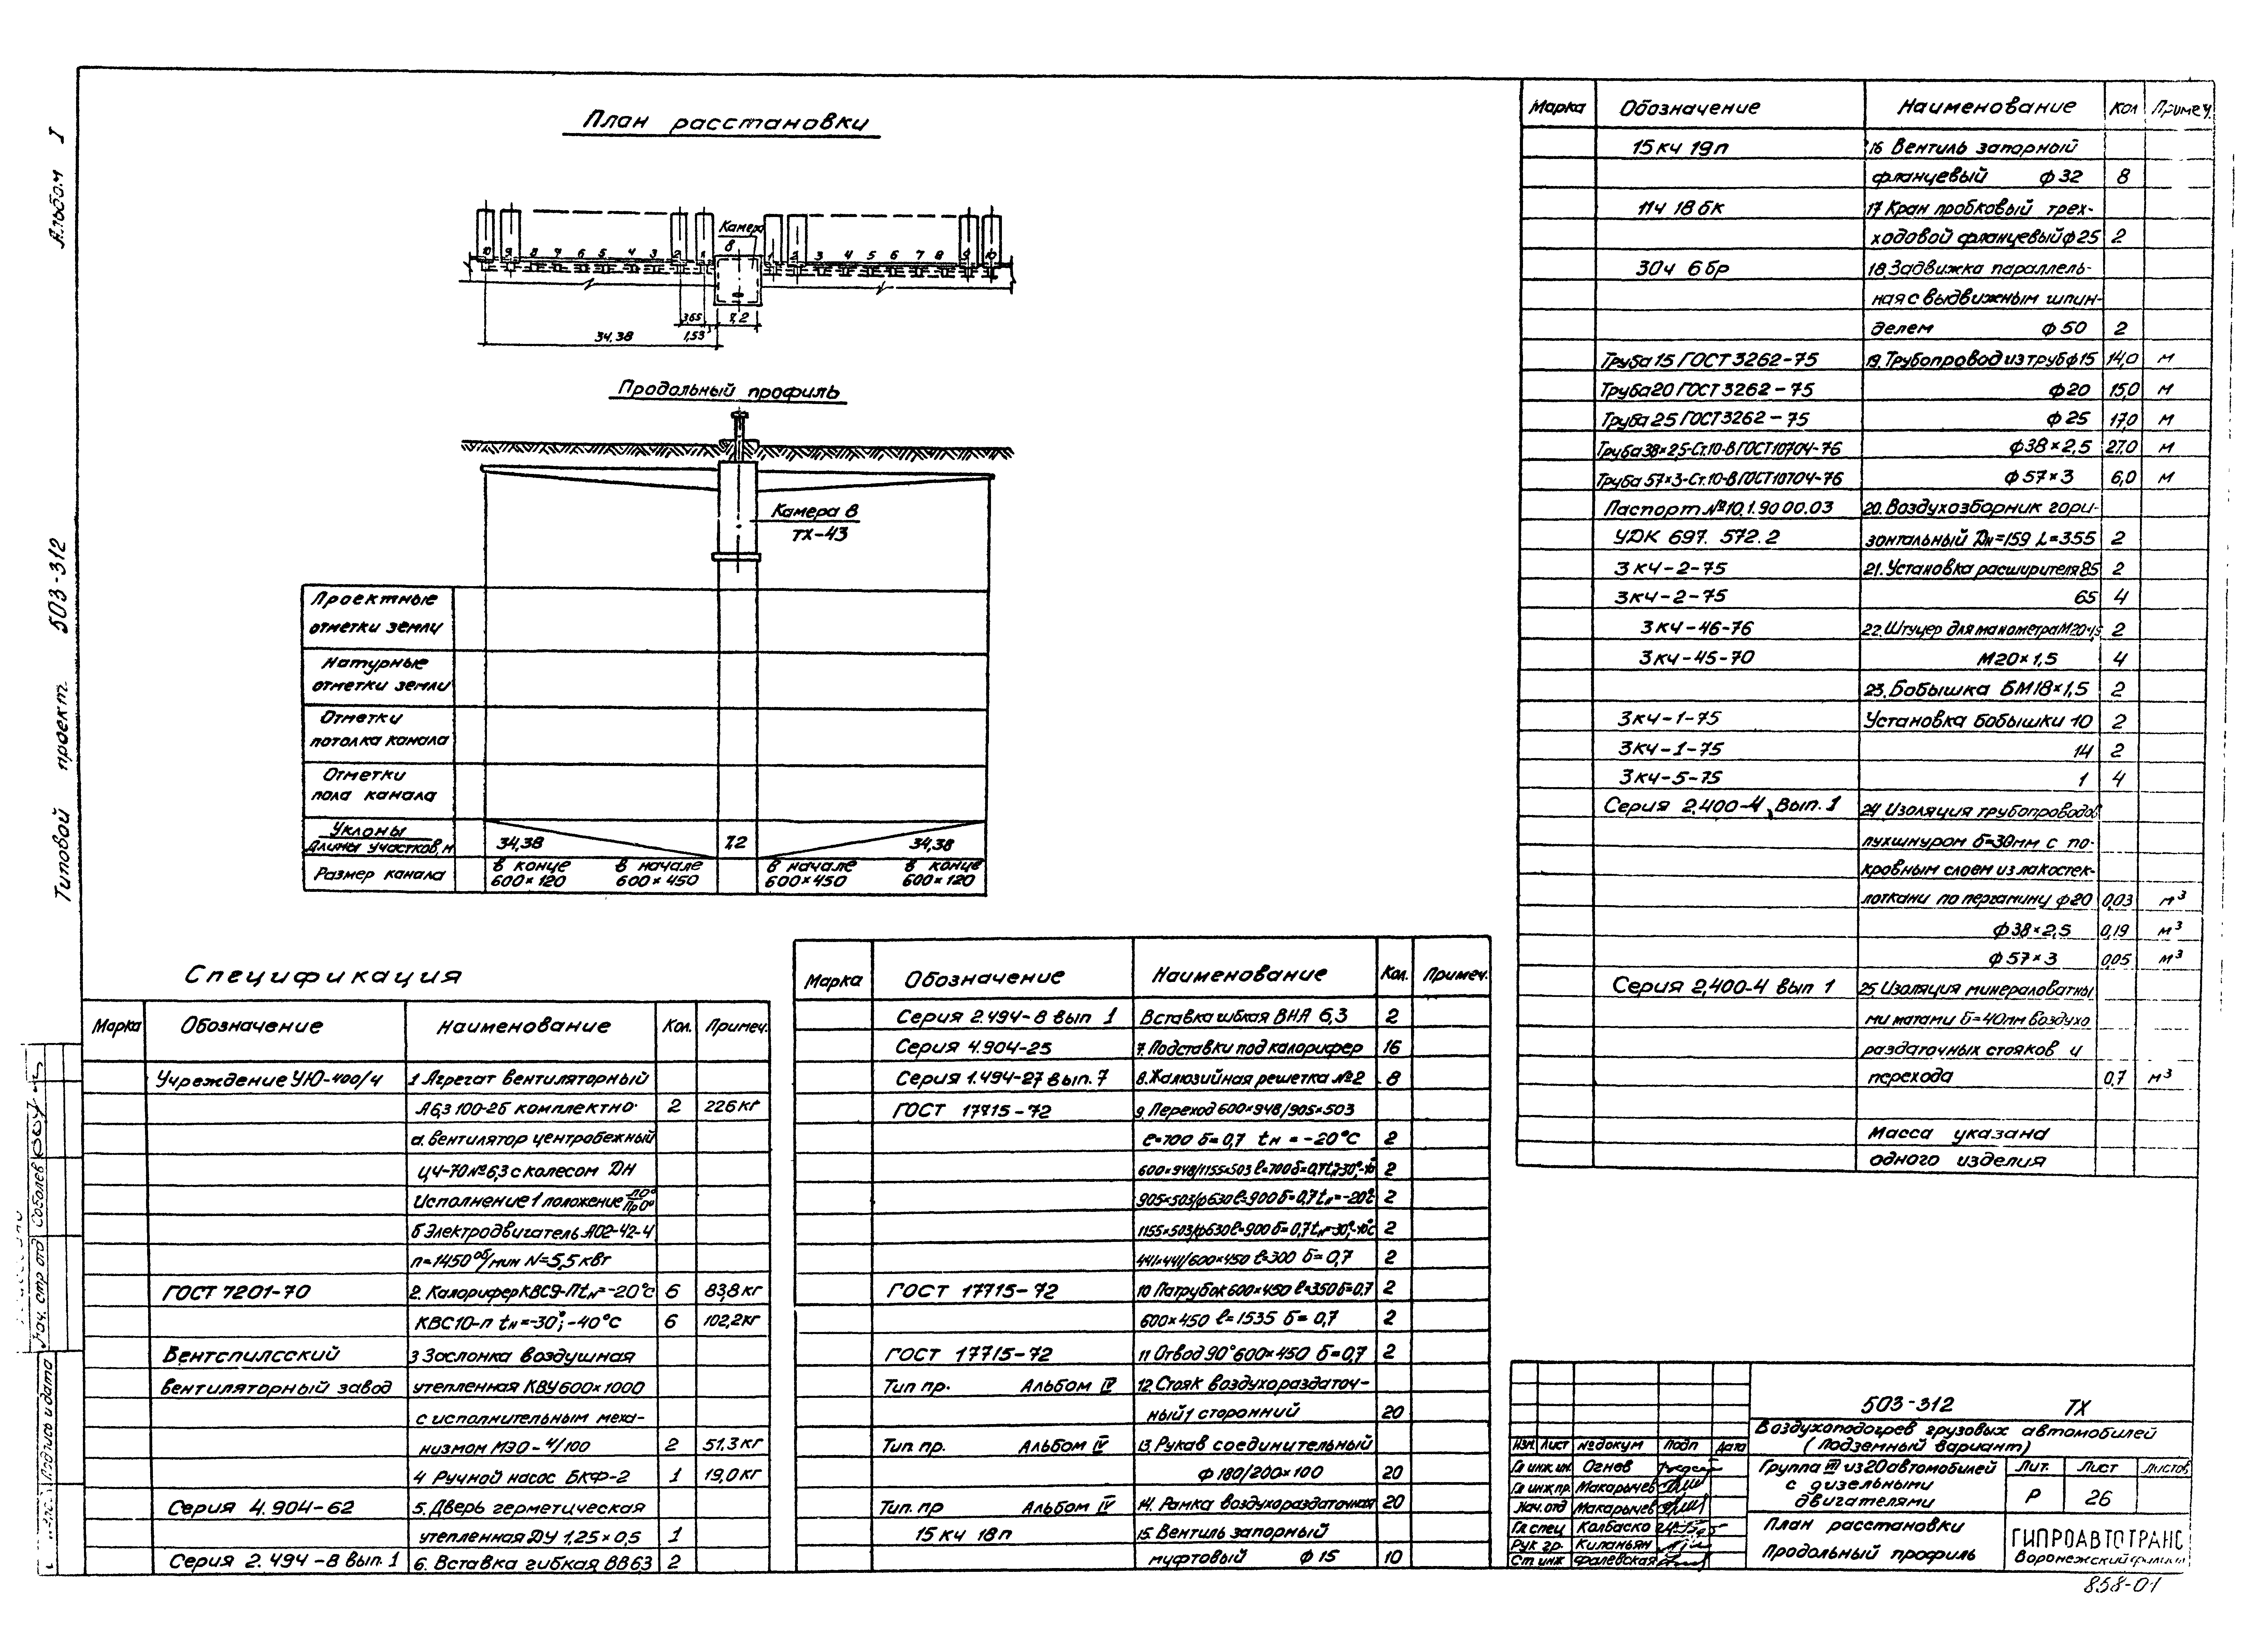 Альбом I
Типовой проект 503-312
План расстановки
Камера
8
10 9 8 7 6 5 4 3 2 1
1 2 3 4 5 6 7 8 9 10
3,65
7,2
1,53
34,38
Продольный профиль
Камера 8
ТХ-43
Проектные
отметки земли
Натурные
отметки земли
Отметки
потолка канала
Отметки
пола канала
Уклоны
Длины участков, м 34,38 7,2 34,38
Размер канала
в конце 600×120
в начале 600×450
в начале 600×450
в конце 600×120
Спецификация
Марка Обозначение Наименование Кол. Примеч.
Учреждение УЮ-400/4 1 Агрегат вентиляторный
А6,3 100-2б комплектно: 2 226 кг
а. вентилятор центробежный
Ц4-70 №6,3 с колесом DН
Исполнение 1 положение Л0°/Пр0°
б Электродвигатель АО2-42-4
n=1450 об/мин N=5,5 квт
ГОСТ 7201-70 2. Калорифер КВС9-П tн=-20°С 6 83,8 кг
КВС10-п tн=-30°; -40°С 6 102,2 кг
Вентспилсский 3 Заслонка воздушная
вентиляторный завод утепленная КВУ 600×1000
с исполнительным меха-
низмом МЭО-4/100 2 51,3 кг
4 Ручной насос БКФ-2 1 19,0 кг
Серия 4.904-62 5. Дверь герметическая
утепленная ДУ 1,25×0,5 1
Серия 2.494-8 вып. 1 6. Вставка гибкая ВВ63 2
Марка Обозначение Наименование Кол. Примеч.
Серия 2.494-8 вып 1 Вставка гибкая ВНА 6,3 2
Серия 4.904-25 7. Подставки под калорифер 16
Серия 1.494-27 вып. 7 8. Жалюзийная решетка №2 8
ГОСТ 17715-72 9. Переход 600×948/905×503
ℓ=700 δ=0,7 tн=-20°С 2
600×948/1155×503 ℓ=700 δ=0,7 tн=-30°,-40° 2
905×503/ф630 ℓ=900 δ=0,7 tн=-20°С 2
1155×503/ф630 ℓ=900 δ=0,7 tн=-30°,-40°С 2
441×441/600×450 ℓ=300 δ=0,7 2
ГОСТ 17715-72 10 Патрубок 600×450 ℓ=350 δ=0,7 2
600×450 ℓ=1535 δ=0,7 2
ГОСТ 17715-72 11 Отвод 90° 600×450 δ=0,7 2
Тип пр. Альбом IV 12. Стояк воздухораздаточ-
ный 1 сторонний 20
Тип пр. Альбом IV 13. Рукав соединительный
ф 180/200×100 20
Тип. пр Альбом IV 14. Рамка воздухораздаточная 20
15 кч 18п 15. Вентиль запорный
муфтовый ф 15 10
Марка Обозначение Наименование Кол Примеч.
15 кч 19п 16 Вентиль запорный
фланцевый ф 32 8
11ч 18 бк 17 Кран пробковый трех-
ходовой фланцевый ф 25 2
30ч 6 бр 18. Задвижка параллель-
ная с выдвижным шпин-
делем ф 50 2
Труба 15 ГОСТ 3262-75 19. Трубопровод из труб ф 15 14,0 м
Труба 20 ГОСТ 3262-75 ф 20 15,0 м
Труба 25 ГОСТ 3262-75 ф 25 17,0 м
Труба 38×2,5-Ст.10-В ГОСТ 10704-76 ф38×2,5 27,0 м
Труба 57×3-Ст.10-В ГОСТ 10704-76 ф 57×3 6,0 м
Паспорт №10.1.90 00.03 20. Воздухозборник гори-
УДК 697. 572.2 зонтальный Dн=159 L=355 2
3 кч-2-75 21. Установка расширителя 85 2
3кч-2-75 65 4
3 кч-46-76 22. Штуцер для манометра М20×1,5 2
3 кч-45-70 М20×1,5 4
23. Бобышка БМ18×1,5 2
3 кч-1-75 Установка бобышки 10 2
3 кч-1-75 14 2
3 кч-5-75 1 4
Серия 2.400-4, Вып. 1 24 Изоляция трубопроводов
пухшнуром δ=30мм с по-
кровным слоем из лакостек-
лоткани по пергамину ф20 0,03 м³
ф 38×2,5 0,19 м³
ф 57×3 0,05 м³
Серия 2,400-4 вып 1 25. Изоляция минераловатны
ми матами δ=40мм воздухо
раздаточных стояков и
перехода 0,7 м³
Масса указана
одного изделия
503-312 ТХ
Воздухоподогрев грузовых автомобилей
(Подземный вариант)
Изм. Лист № докум Подп Дата
Гл инж. ин. Огнев
Гл инж пр. Макарычев
Нач. отд Макарычев
Гл спец Колбаско
Рук гр. Киланьян
Ст инж Фалевская
Группа VII из 20 автомобилей
с дизельными
двигателями
Лит. Лист Листов
Р 26
План расстановки
Продольный профиль
ГИПРОАВТОТРАНС
Воронежский филиал
858-01
Нач. стр отд Соболев
Подпись и дата